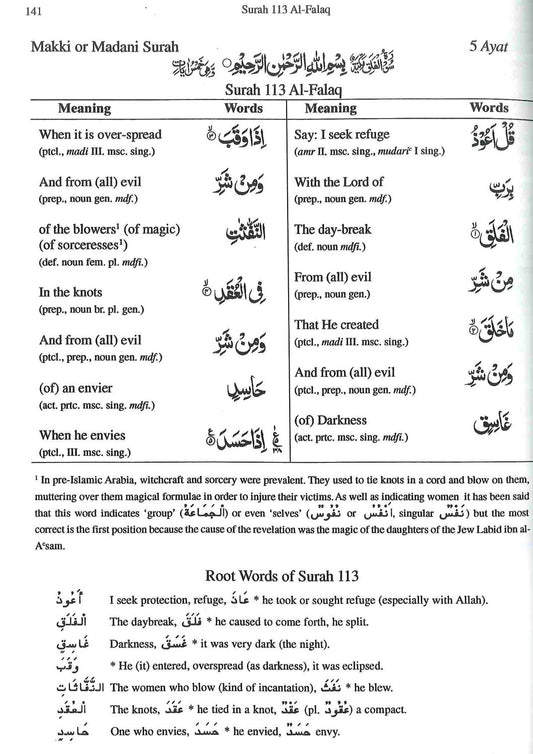 141
Surah 113 Al-Falaq
Makki or Madani Surah
بِسْمِ اللهِ الرَّحْمٰنِ الرَّحِيْمِ
5 Ayat
Surah 113 Al-Falaq
Meaning Words Meaning Words
Say: I seek refuge قُلْ اَعُوْذُ
(amr II. msc. sing., mudariᶜ I sing.)
With the Lord of بِرَبِّ
(prep., noun gen. mdf.)
The day-break الْفَلَقِ ۙ﴿۱﴾
(def. noun mdfi.)
From (all) evil مِنْ شَرِّ
(prep., noun gen.)
That He created مَا خَلَقَ ۙ﴿۲﴾
(ptcl., madi III msc. sing.)
And from (all) evil وَمِنْ شَرِّ
(ptcl., prep., noun gen. mdf.)
(of) Darkness غَاسِقٍ
(act. prtc. msc. sing. mdfi.)
When it is over-spread اِذَا وَقَبَ ۙ﴿۳﴾
(ptcl., madi III. msc. sing.)
And from (all) evil وَمِنْ شَرِّ
(prep., noun gen. mdf.)
of the blowers¹ (of magic) النَّفّٰثٰتِ
(of sorceresses¹)
(def. noun fem. pl. mdfi.)
In the knots فِى الْعُقَدِ ۙ﴿۴﴾
(prep., noun br. pl. gen.)
And from (all) evil وَمِنْ شَرِّ
(ptcl., prep., noun gen. mdf.)
(of) an envier حَاسِدٍ
(act. prtc. msc. sing. mdfi.)
When he envies اِذَا حَسَدَ ﴿۵﴾
(ptcl., III. msc. sing.)
¹ In pre-Islamic Arabia, witchcraft and sorcery were prevalent. They used to tie knots in a cord and blow on them,
muttering over them magical formulae in order to injure their victims. As well as indicating women it has been said
that this word indicates 'group' (اَلْجَمَاعَةُ) or even 'selves' (نُفُوْسٌ or اَنْفُسٌ, singular نَفْسٌ) but the most
correct is the first position because the cause of the revelation was the magic of the daughters of the Jew Labid ibn al-
Aᶜsam.
Root Words of Surah 113
أَعُوْذُ I seek protection, refuge, عَاذَ * he took or sought refuge (especially with Allah).
الْفَلَقِ The daybreak, فَلَقَ * he caused to come forth, he split.
غَاسِقٍ Darkness, غَسَقَ * it was very dark (the night).
وَقَبَ * He (it) entered, overspread (as darkness), it was eclipsed.
النَّفَّاثَاتِ The women who blow (kind of incantation), نَفَثَ * he blew.
الْعُقَدِ The knots, عَقَدَ * he tied in a knot, عَقْدٌ (pl. عُقُوْدٌ) a compact.
حَاسِدٍ One who envies, حَسَدَ * he envied, حَسَدٌ envy.